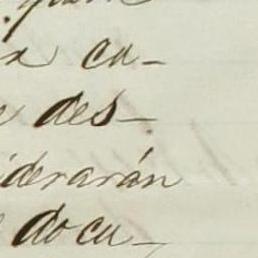 ca-
des-
derarán
docu-